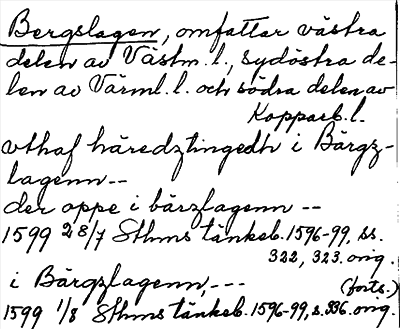 Bergslagen, omfattar västra
delen av Västm. l., sydöstra de-
len av Värml. l. och södra delen av
Kopparb. l.
vthaf häredztingedh i Bärgz-
lagenn--
der oppe i bärzlagenn --
1599 28/7 Sthms tänkeb. 1596-99, ss.
322, 323. orig.
i Bärgzlagenn, --- (forts.)
1599 1/8 Sthms tänkeb. 1596-99, s. 336. orig.